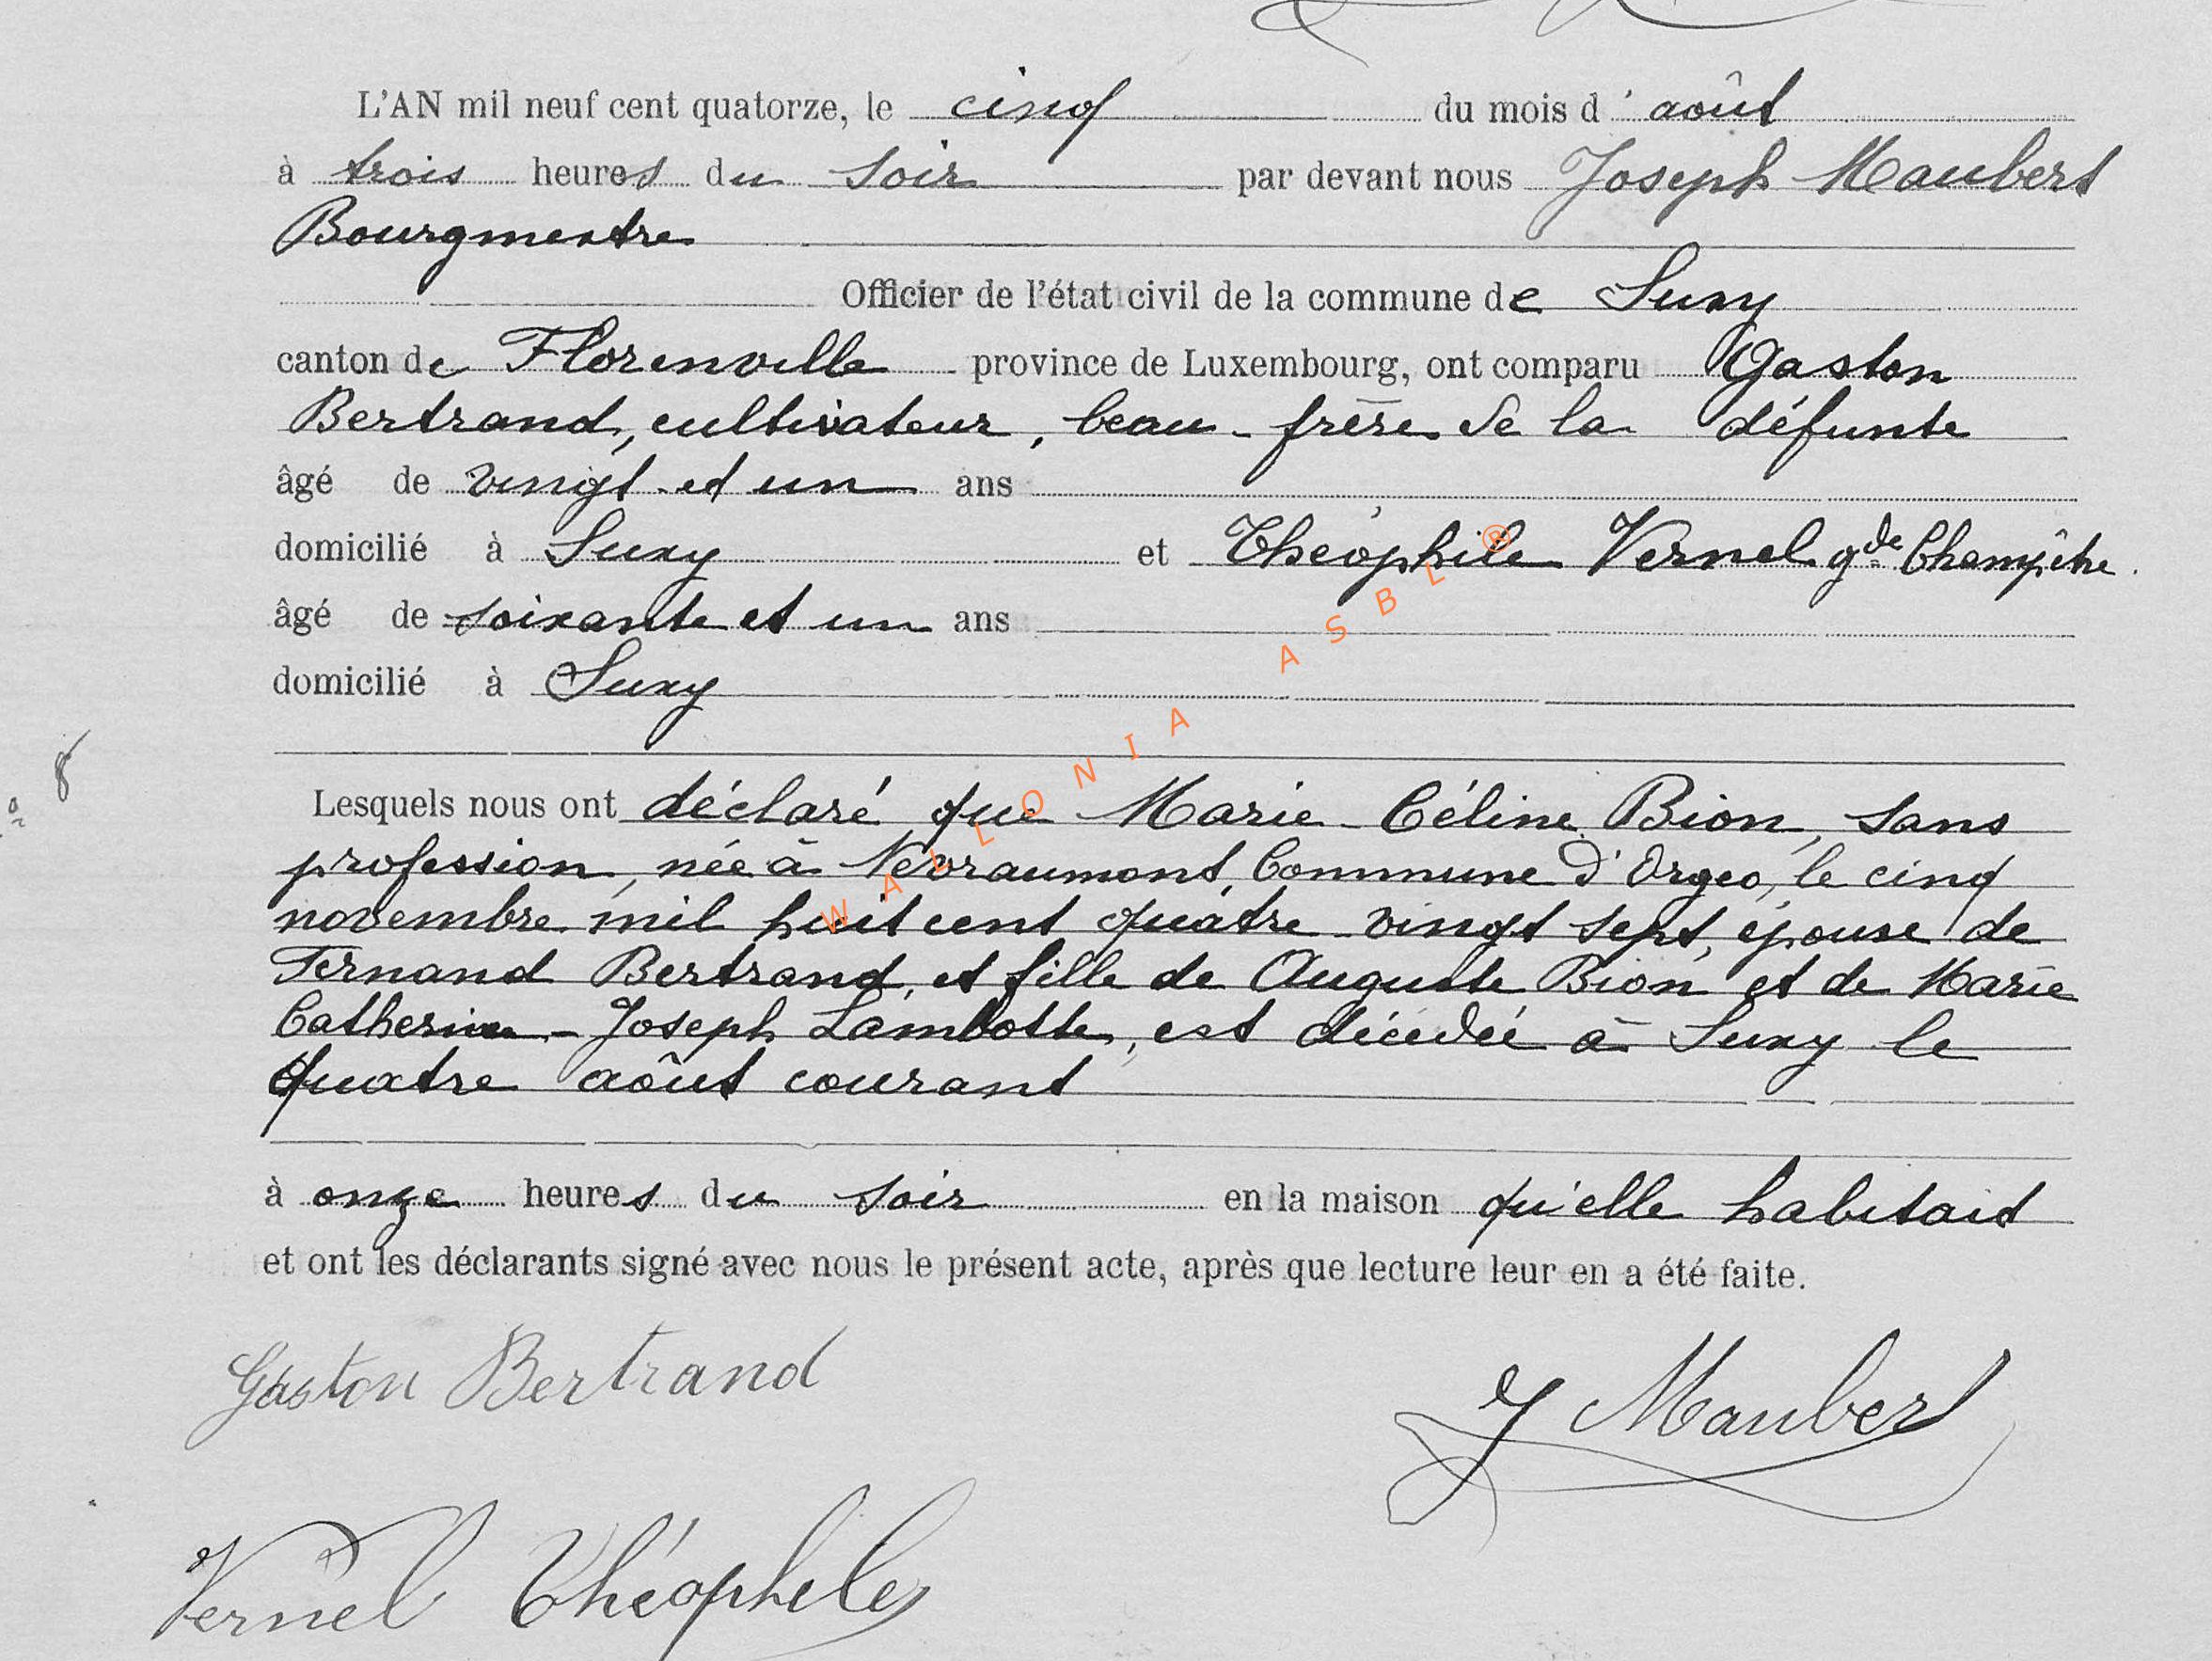 L'AN mil neuf cent quatorze, le cinq du mois d'août
à trois heures du soir par devant nous Joseph Maubert
Bourgmestre
Officier de l'état civil de la commune de Suxy
canton de Florenville province de Luxembourg, ont comparu Gaston
Bertrand, cultivateur, beau-frère de la défunte
âgé de vingt et un ans
domicilié à Suxy et Théophile Vernel gde Champêtre.
âgé de soixante et un ans
domicilié à Suxy
8
Lesquels nous ont déclaré que Marie-Céline Bion, sans
profession, née à Nevraumont, Commune d'Orgeo, le cinq
novembre mil huit cent quatre-vingt sept, épouse de
Fernand Bertrand, et fille de Auguste Bion et de Marie
Catherine-Joseph Lambotte, est décédée à Suxy le
quatre août courant
à onze heures du soir en la maison qu'elle habitait
et ont les déclarants signé avec nous le présent acte, après que lecture leur en a été faite.
Gaston Bertrand
J Maubert
Vernel Théophile
WALLONIA ASBL ®